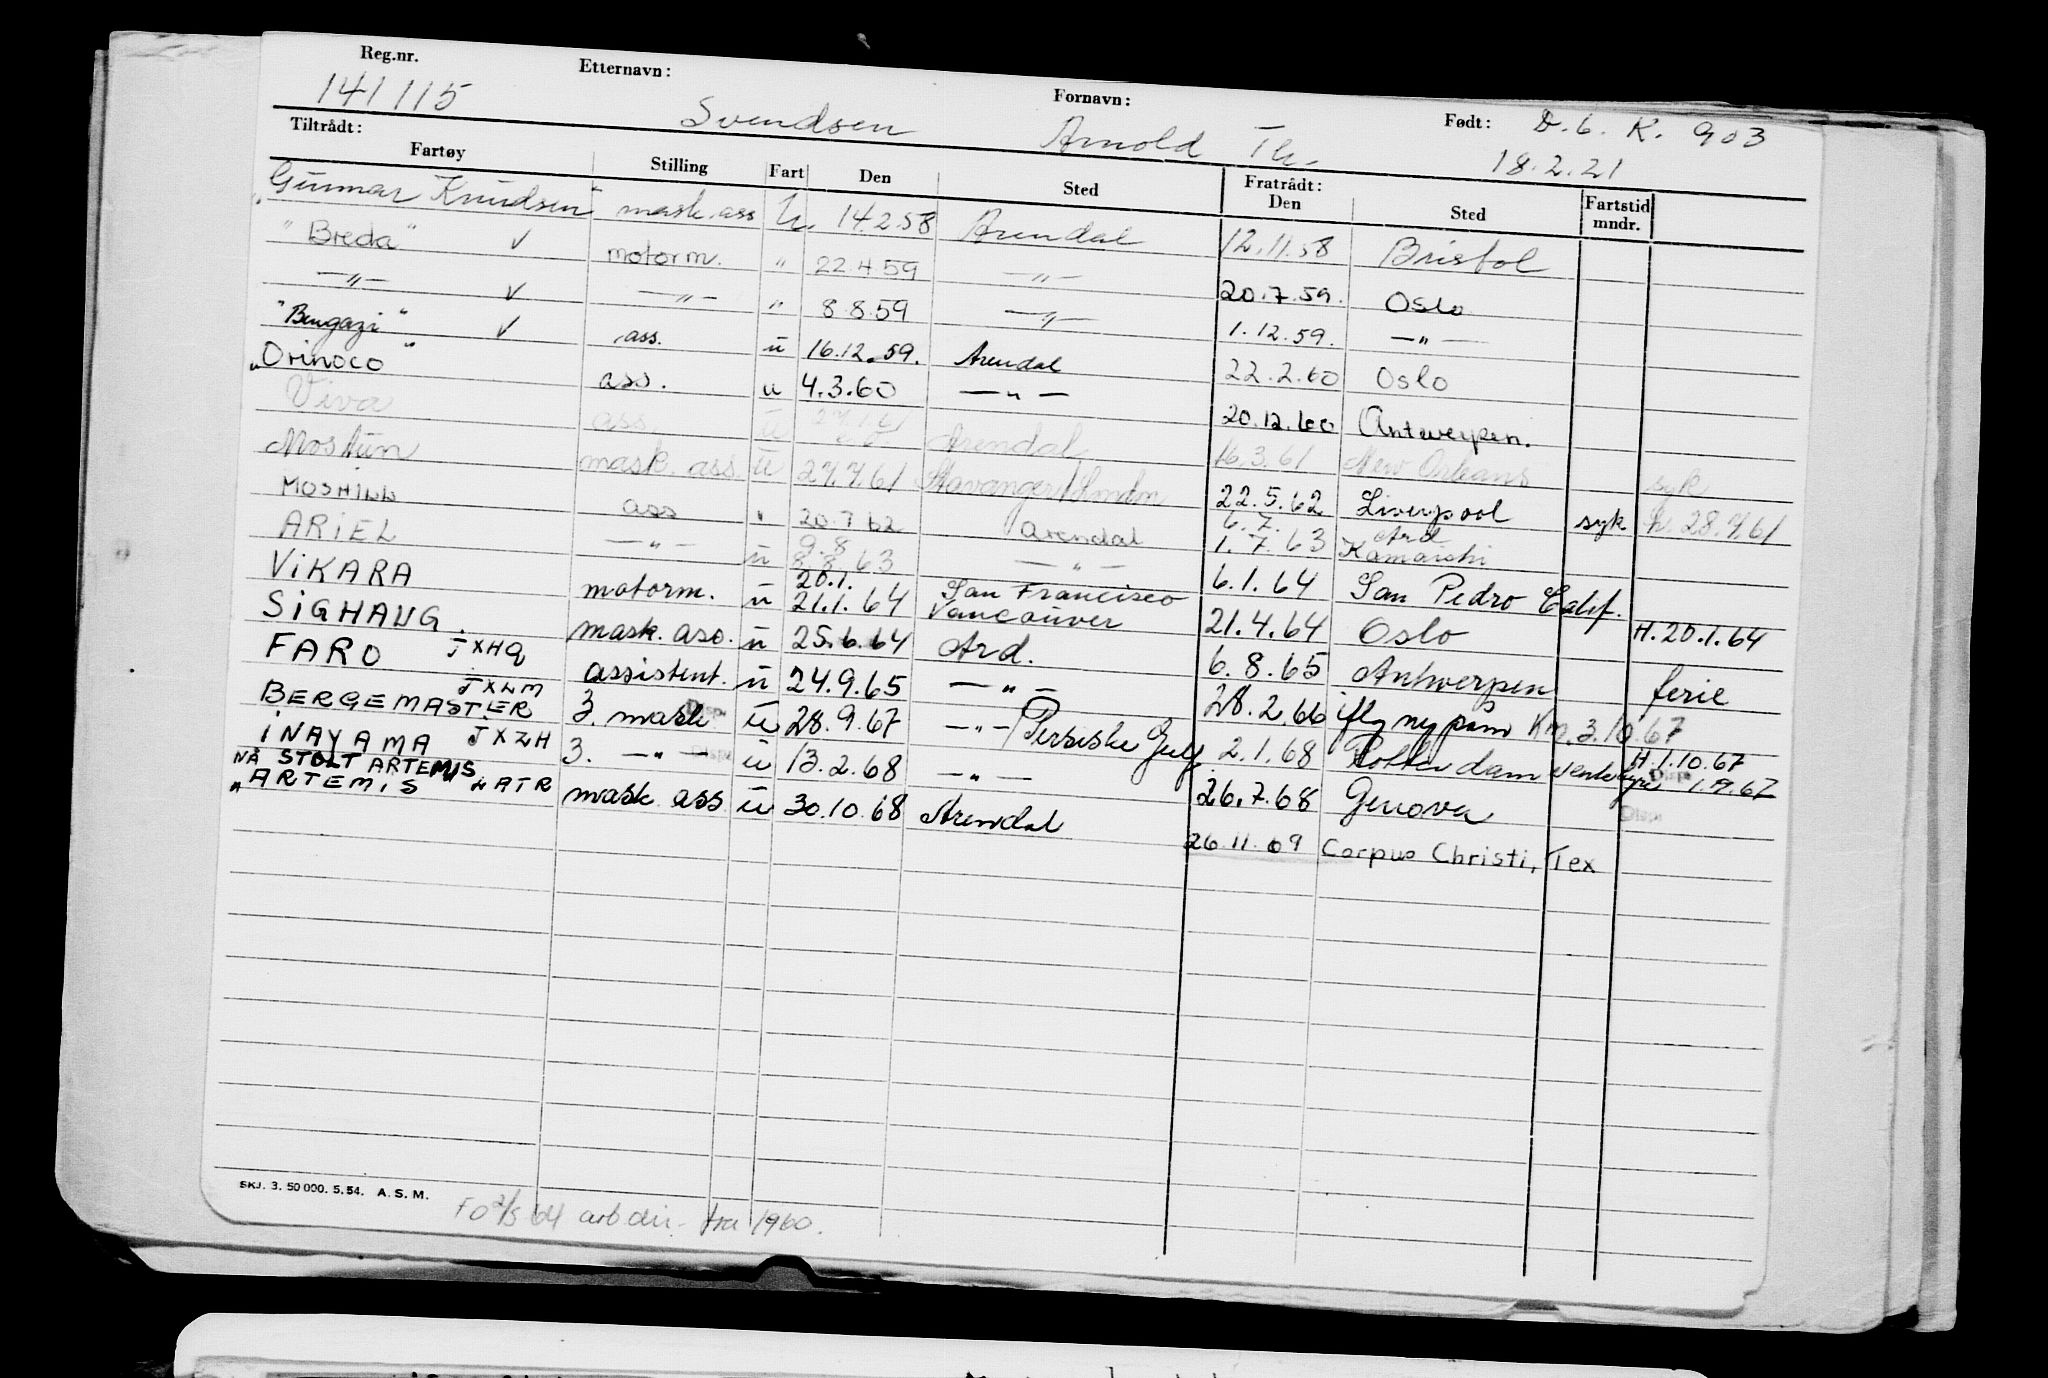 Reg.nr. Etternavn: Fornavn: Født: D.6. K. 903
141115 Svendsen Arnold Th. 18.2.21
Tiltrådt: Fratrådt:
Fartøy Stilling Fart Den Sted Den Sted Fartstid mndr.
"Gunnar Knudsen" mask.ass U. 14.2.58 Arendal 12.11.58 Bristol
"Breda" ✓ motorm. " 22.4.59 —"— 20.7.59. Oslo
—"— ✓ —"— " 8.8.59 —"— 1.12.59. —"—
"Bengazi" ✓ ass. u 16.12.59. Arendal 22.2.60 Oslo
"Orinoco" ass. u 4.3.60 —"— 20.12.60 Antwerpen.
Viva ass. u Arendal 16.3.61 New Orleans syk
Mostun mask. ass. u 27.7.61 Stavanger 22.5.62 Liverpool syk h. 28.7.61
MOSHILL ass " 20.7.62 Arendal 6.7. 1.7.63 Ard Kamaishi
ARIEL —"— u 9.8 8.8.63 —"— 6.1.64 San Pedro Calif.
VIKARA motorm. u 20.1. 21.1.64 San Francisco Vancouver 21.4.64 Oslo H. 20.1.64
SIGHAUG. JXHQ mask. ass. u 25.6.64 Ard. 6.8.65 Antwerpen ferie
FARO JXLM assistent. u 24.9.65 —"— 28.2.66
BERGEMASTER JXZH 3. mask Disp u 28.9.67 —"— Persiske Gulf 2.1.68 Rotterdam H. 1.10.67
INAYAMA 3. —"— Disp u 13.2.68 —"— 26.7.68 Genova Disp
NÅ STOLT ARTEMIS
"ARTEMIS LATR mask ass u 30.10.68 Arendal 26.11.69 Corpus Christi, Tex
SKJ. 3. 50 000. 5.54. A. S. M.
FO 2/5 64 arb dir. fra 1960.